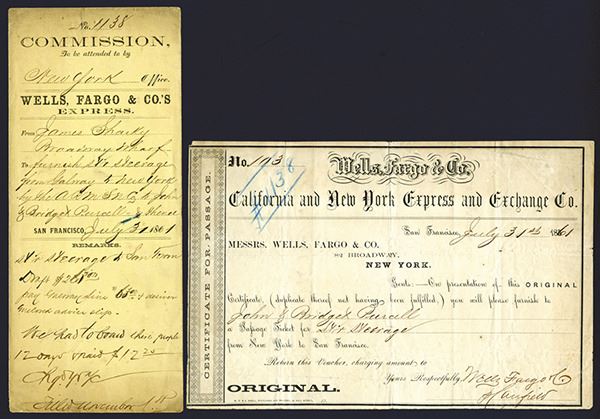 No. 1138
COMMISSION,
To be attended to by
New York Office.
WELLS, FARGO & CO.'S
EXPRESS.
From James Sharky
Broadway Wharf
To furnish Str Steerage
from Galway to New York
by the to John
& Bridget Purcell & thence
SAN FRANCISCO, July 31 1861
REMARKS.
Str Steerage to San
Draft $
pay
We had to board these people
12 days paid $12
Filed November
CERTIFICATE FOR PASSAGE.
No. 193
#1138
Wells, Fargo & Co.
California and New York Express and Exchange Co.
San Francisco, July 31st 1861
MESSRS. WELLS, FARGO & CO.
82 BROADWAY,
NEW YORK.
Gents:—On presentation of this ORIGINAL
Certificate, (duplicate thereof not having been fulfilled,) you will please furnish to
John & Bridget Purcell
a Passage Ticket for Str Steerage
from New York to San Francisco.
Return this Voucher, charging amount to
Yours Respectfully, Wells Fargo & Co
ORIGINAL.